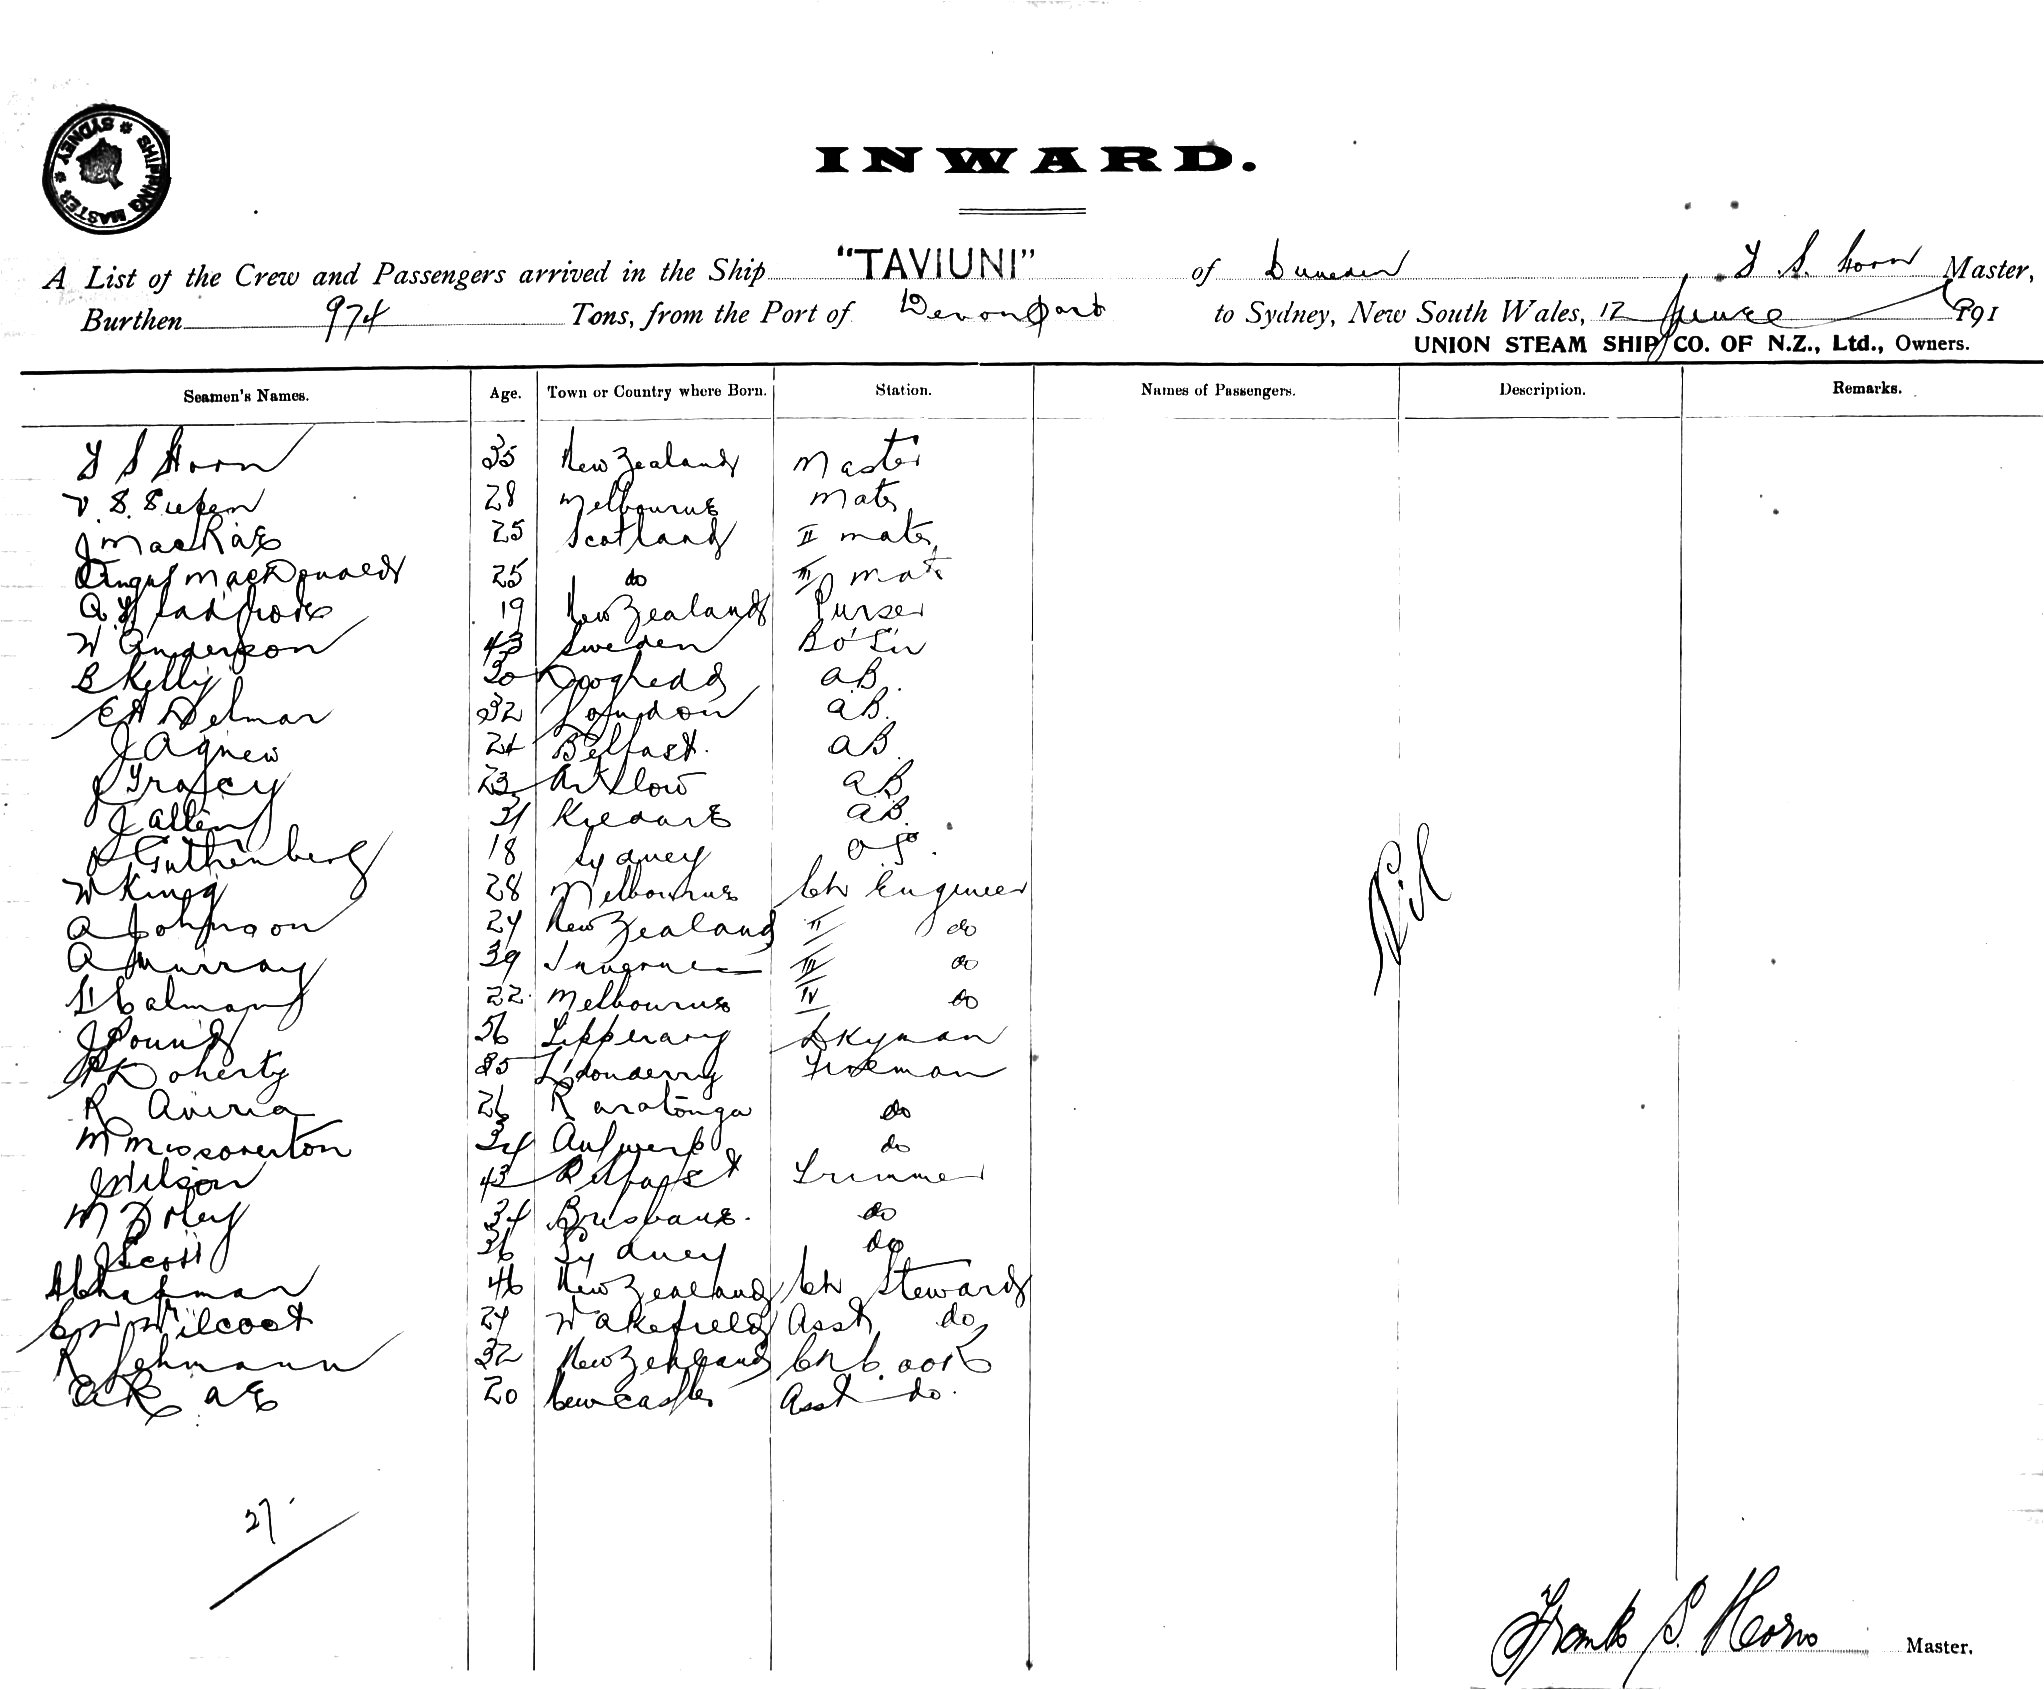 SHIPPING MASTER * SYDNEY *
INWARD.
A List of the Crew and Passengers arrived in the Ship "TAVIUNI" of Dunedin F S Horn Master,
Burthen 974 Tons, from the Port of Devonport to Sydney, New South Wales, 12 June 191
UNION STEAM SHIP CO. OF N.Z., Ltd., Owners.
Seamen's Names. Age. Town or Country where Born. Station. Names of Passengers. Description. Remarks.
F S Horn 35 New Zealand Master
V. S. 28 Melbourne Mate
J MacRae 25 Scotland II mate
Angus MacDonald 25 do III mate
A 19 New Zealand Purser
W Anderson 43 Sweden Bo'S'n
B Kelly 30 Drogheda AB.
E A Delmar 32 London AB.
J Agnew 24 Belfast. AB
J Tracey 23 Arklow AB
J Allen 31 Kildare AB.
Guthenberg 18 Sydney OS.
W King 28 Melbourne Ch Engineer
A Johnson 24 New Zealand II do
A Murray 39 Inverness III do
H Calman 22 Melbourne IV do
J Pound 56 Tipperary Dkyman
P Doherty 35 L'donderry Fireman
R Averia 26 Raratonga do
M 34 Antwerp do
J Wilson 43 Belfast Trimmer
M Foley 34 Brisbane. do
J Scott 36 Sydney do
A Chapman 46 New Zealand Ch Steward
C W Wilcock 24 Wakefield Asst do
R Lehmann 32 New Zealand Ch Cook
A Rae 20 Newcastle Asst do.
Nil
27
Frank S. Horn Master.